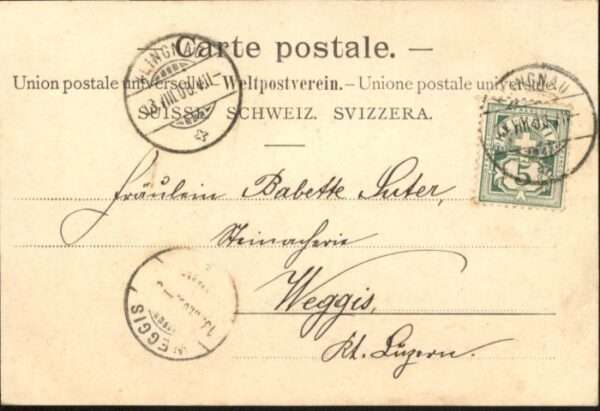 — Carte postale. —
Union postale universelle. – Weltpostverein. – Unione postale universale.
SUISSE. SCHWEIZ. SVIZZERA.
KLINGNAU
KLINGNAU
5
Fräulein Babette Suter,
Steinacherie
Weggis,
Kt. Luzern.
WEGGIS